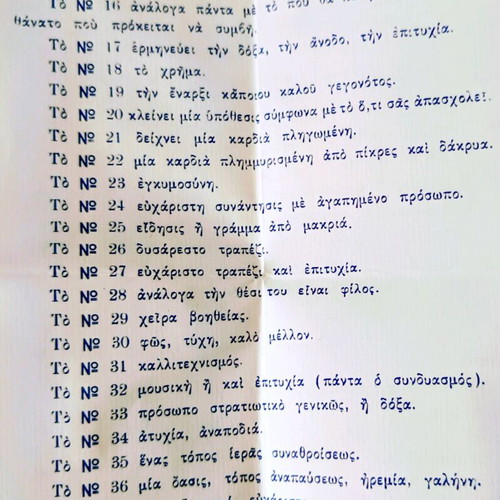 Τὸ № 16 ἀνάλογα πάντα μὲ τὸ ποῦ θὰ
θάνατο ποὺ πρόκειται νὰ συμβῇ.
Τὸ № 17 ἑρμηνεύει τὴν δόξα, τὴν ἄνοδο, τὴν ἐπιτυχία.
Τὸ № 18 τὸ χρῆμα.
Τὸ № 19 τὴν ἔναρξι κάποιου καλοῦ γεγονότος.
Τὸ № 20 κλείνει μία ὑπόθεσις σύμφωνα μὲ τὸ ὅ,τι σᾶς ἀπασχολεῖ.
Τὸ № 21 δείχνει μία καρδιὰ πληγωμένη.
Τὸ № 22 μία καρδιὰ πλημμυρισμένη ἀπὸ πίκρες καὶ δάκρυα.
Τὸ № 23 ἐγκυμοσύνη.
Τὸ № 24 εὐχάριστη συνάντησις μὲ ἀγαπημένο πρόσωπο.
Τὸ № 25 εἴδησις ἢ γράμμα ἀπὸ μακριά.
Τὸ № 26 δυσάρεστο τραπέζι.
Τὸ № 27 εὐχάριστο τραπέζι καὶ ἐπιτυχία.
Τὸ № 28 ἀνάλογα τὴν θέσι του εἶναι φίλος.
Τὸ № 29 χεῖρα βοηθείας.
Τὸ № 30 φῶς, τύχη, καλὸ μέλλον.
Τὸ № 31 καλλιτεχνισμός.
Τὸ № 32 μουσικὴ ἢ καὶ ἐπιτυχία (πάντα ὁ συνδυασμός).
Τὸ № 33 πρόσωπο στρατιωτικὸ γενικῶς, ἢ δόξα.
Τὸ № 34 ἀτυχία, ἀναποδιά.
Τὸ № 35 ἕνας τόπος ἱερᾶς συναθροίσεως.
Τὸ № 36 μία ὄασις, τόπος ἀναπαύσεως, ἠρεμία, γαλήνη.